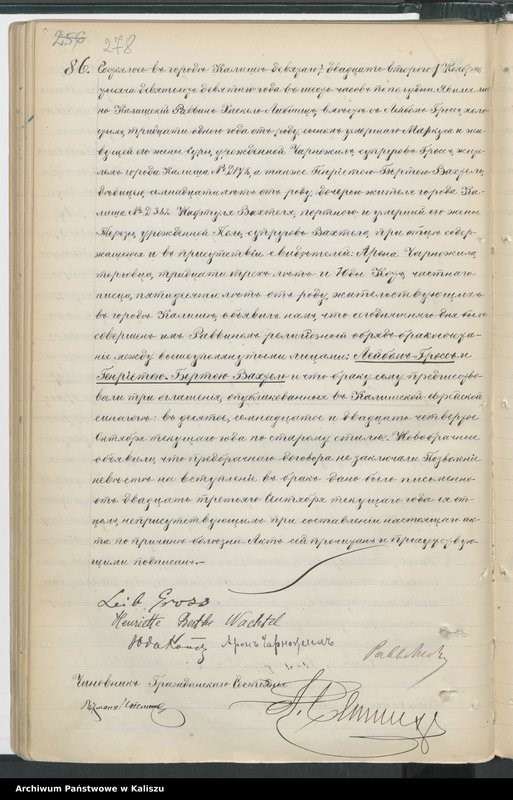 256
278
86. Состоялось въ городѣ Калишѣ девятаго / двадцать второго / Ноября
тысяча девятьсотъ девятаго года въ шесть часовъ по полудни. Явился лич-
но Калишскій Раввинъ вмѣстѣ съ Лейбомъ Гроссъ, холо-
стымъ, тридцати одного года отъ роду, сыномъ умершаго Маркуса и жи-
вущей его жены Суры, урожденной Чарножилъ, супруговъ Гроссъ, жи-
телемъ города Калиша № а также Генріетою-Бертою Вахтель,
дѣвицею, семнадцати лѣтъ отъ роду, дочерью жителя города Ка-
лиша № Нафтуля Вахтеля, портного и умершей его жены
Терезы, урожденной супруговъ Вахтель, при отцѣ содер-
жащеюся и въ присутствіи свидѣтелей: Арона Чарножила,
торговца, тридцати трехъ лѣтъ и Юды частнаго
писца, пятидесяти лѣтъ отъ роду, жительствующихъ
въ городѣ Калишѣ, объявилъ намъ, что сегодняшняго дня былъ
совершенъ имъ Раввиномъ религіозный обрядъ бракосочета-
нія между вышеупомянутыми лицами: Лейбомъ Гроссъ и
Генріетою-Бертою Вахтель и что браку сему предшество-
вали три оглашенія, опубликованныя въ Калишской еврейской
синагогѣ: въ десятое, семнадцатое и двадцать четвертое
Октября текущаго года по старому стилю. Новобрачные
объявили, что предбрачнаго договора не заключали. Позволеніе
невѣстѣ на вступленіе въ бракъ дано было письменно
отъ двадцать третьяго Сентября текущаго года ея от-
цомъ, неприсутствующимъ при составленіи настоящаго ак-
та по причинѣ болѣзни. Актъ сей прочитанъ и присутствую-
щими подписанъ.
Leib Gross
Henriette Bertha Wachtel
Аронъ Чарножилъ
Чиновникъ Гражданскаго Состоянія
Archiwum Państwowe w Kaliszu